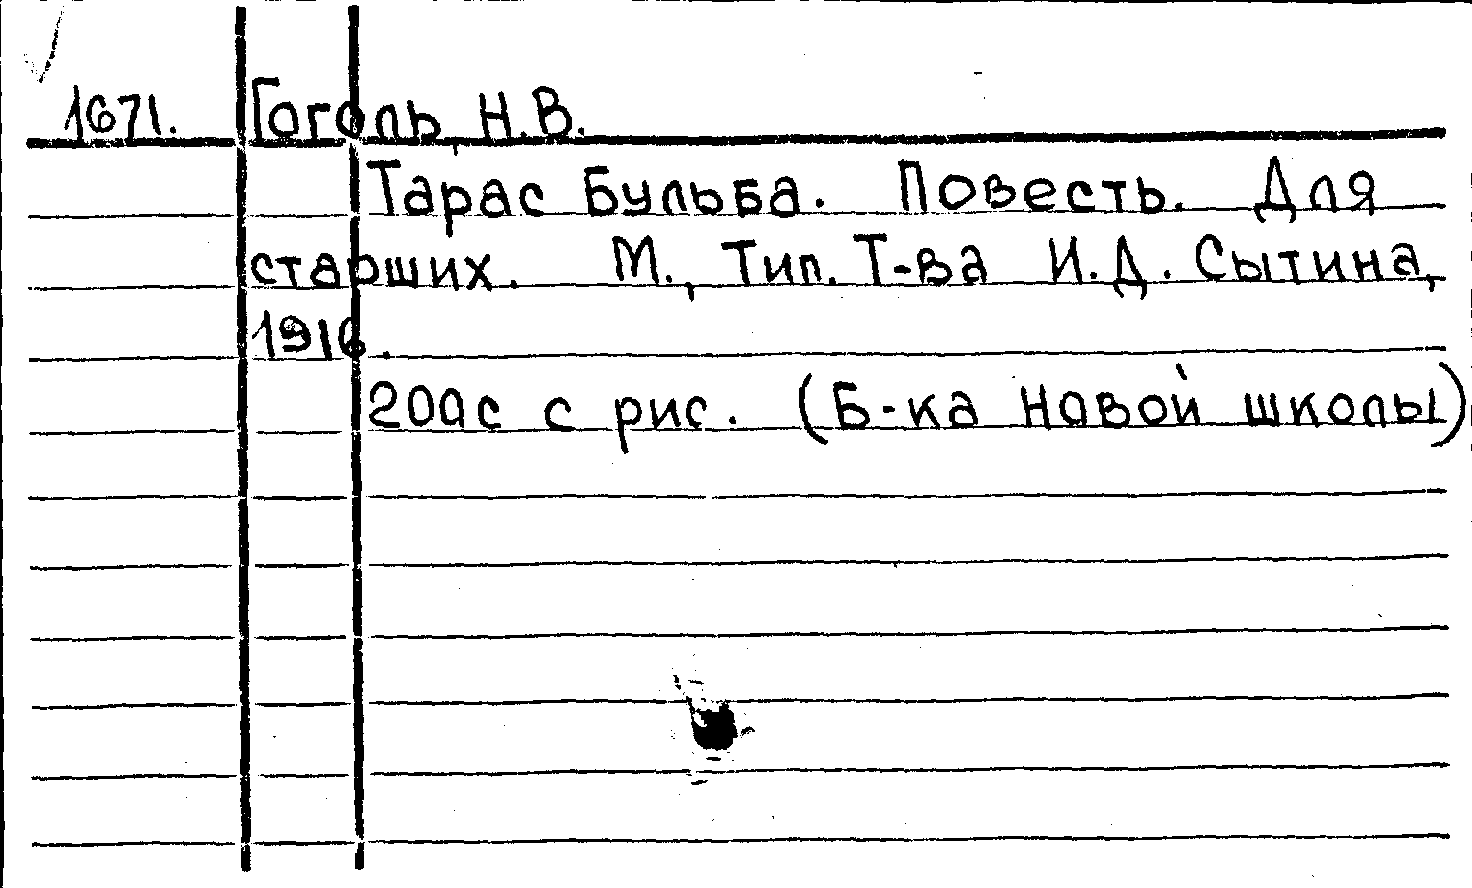 1671. Гоголь, Н.В.
Тарас Бульба. Повесть. Для
старших. М., Тип. Т-ва И.Д. Сытина,
1916.
200с с рис. (Б-ка новой школы)